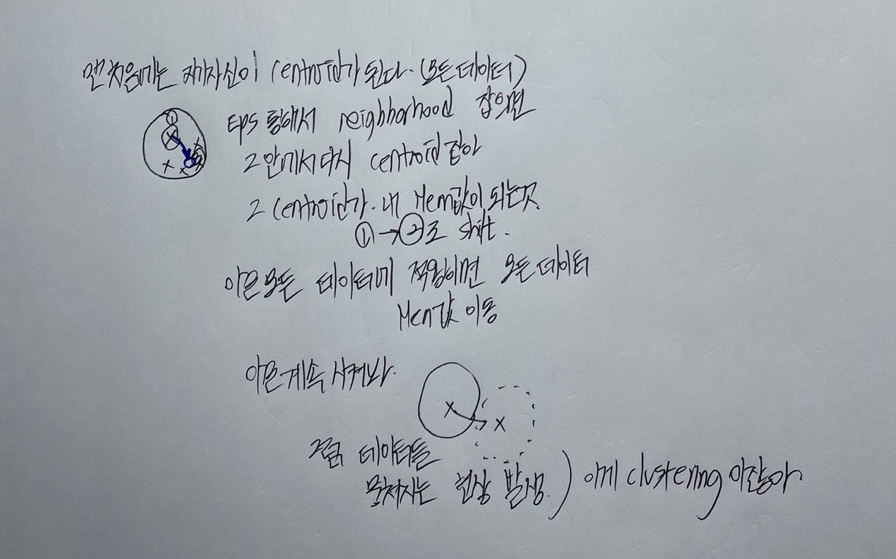 맨처음에는 자기자신이 centroid가 된다. (모든 데이터)
①
Eps 통해서 neighborhood 잡으면
그 안에서 다시 centroid 잡아
그 centroid가 내 Mean값이 되는것.
①→②로 shift.
이론 모든 데이터에 적용하면 모든 데이터
Mean값 이동
이론 계속 시켜봐.
그럼 데이터들
뭉쳐지는 현상 발생.) 이게 clustering 이잖아